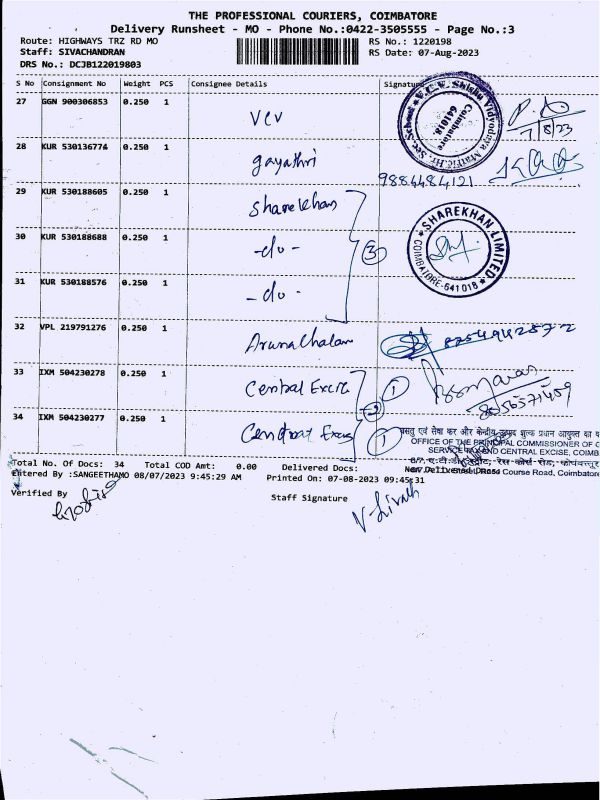 THE PROFESSIONAL COURIERS, COIMBATORE
Delivery Runsheet - MO - Phone No.:0422-3505555 - Page No.:3
Route: HIGHWAYS TRZ RD MO
RS No.: 1220198
Staff: SIVACHANDRAN
RS Date: 07-Aug-2023
DRS No.: DCJB122019803
S No Consignment No Weight PCS Consignee Details Signature
27 GGN 900306853 0.250 1 VCV
V.C.V. Shishu Vidyodaya Matric. Hr. Sec. School
Coimbatore 641018
7/8/23
28 KUR 530136774 0.250 1 gayathri
9884484121
29 KUR 530188605 0.250 1 Sharekhan
30 KUR 530188688 0.250 1 -do- 3
SHAREKHAN LIMITED
COIMBATORE-641018
31 KUR 530188576 0.250 1 -do-
32 VPL 219791276 0.250 1 Arunachalam
33 IXM 504230278 0.250 1 Central Excise 1
8056571409
2
34 IXM 504230277 0.250 1 Central Excise 1
OFFICE OF THE PRINCIPAL COMMISSIONER OF
SERVICE TAX AND CENTRAL EXCISE, COIMB
Race Course Road, Coimbatore
Total No. Of Docs: 34 Total COD Amt: 0.00 Delivered Docs: Non Delivered Docs:
Entered By :SANGEETHAMO 08/07/2023 9:45:29 AM Printed On: 07-08-2023 09:45:31
Verified By
Staff Signature